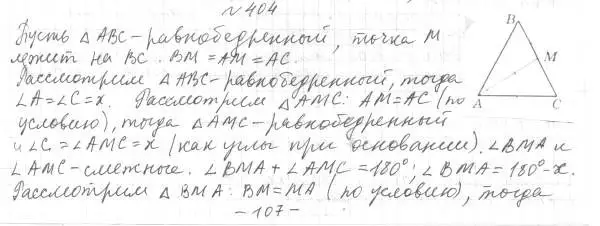 №404
Пусть △ABC-равнобедренный, точка M
лежит на BC. BM=AM=AC.
Рассмотрим △ABC-равнобедренный, тогда
∠A=∠C=x. Рассмотрим △AMC: AM=AC (по
условию), тогда △AMC-равнобедренный
и ∠C=∠AMC=x (как углы при основании). ∠BMA и
∠AMC-смежные. ∠BMA+∠AMC=180°; ∠BMA=180°-x.
Рассмотрим △BMA: BM=MA (по условию), тогда
B
M
A
C
-107-